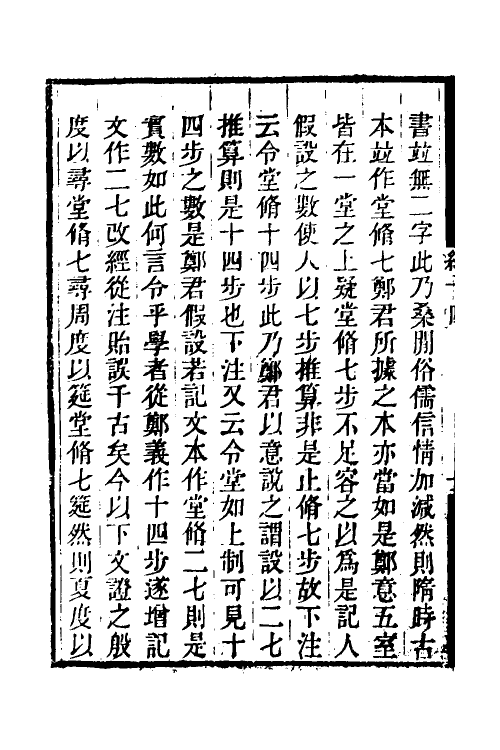 書並無二字此乃桑閒俗儒信情加減然則隋時古
本並作堂脩七鄭君所據之本亦當如是鄭意五室
皆在一堂之上疑堂脩七步不足容之以爲是記人
假設之數使人以七步推算非是止脩七步故下注
云令堂脩十四步此乃鄭君以意說之謂設以二七
推算則是十四步也下注又云令堂如上制可見十
四步之數是鄭君假設若記文本作堂脩二七則是
實數如此何言令乎學者從鄭義作十四步遂增記
文作二七改經從注貽誤千古矣今以下文證之殷
度以尋堂脩七尋周度以筵堂脩七筵然則夏度以